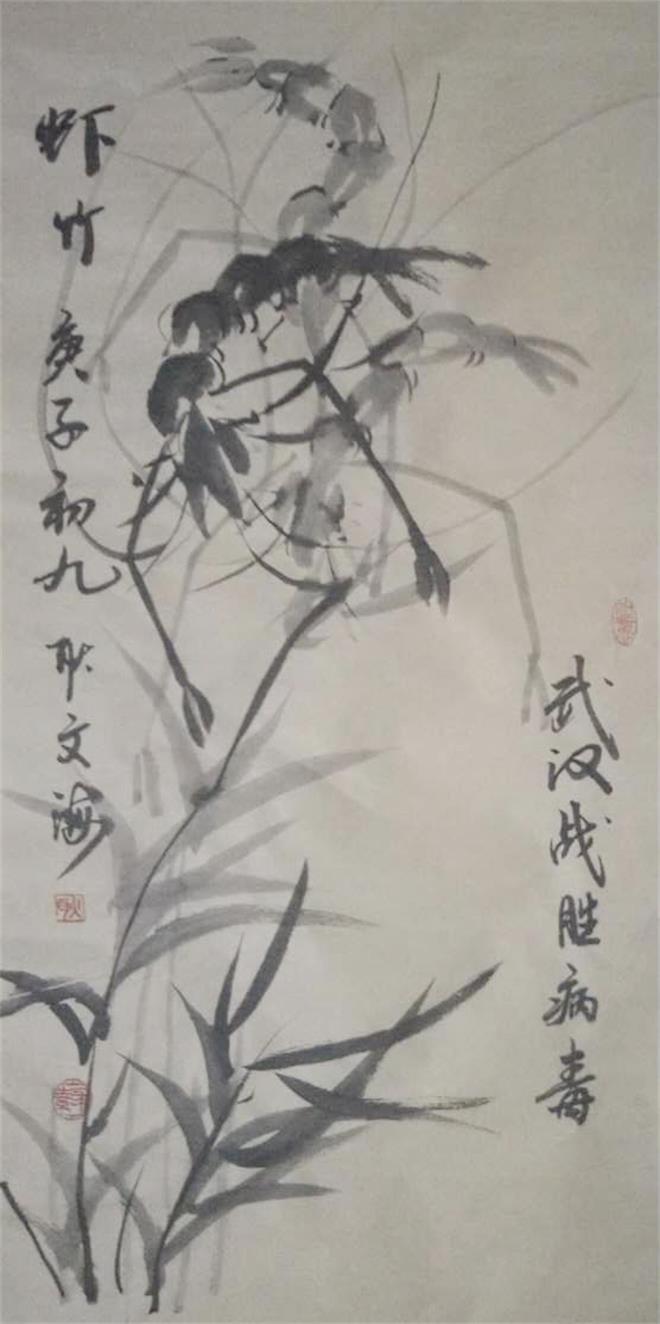 武汉战胜病毒
虾竹 庚子初九 耿文海
耿